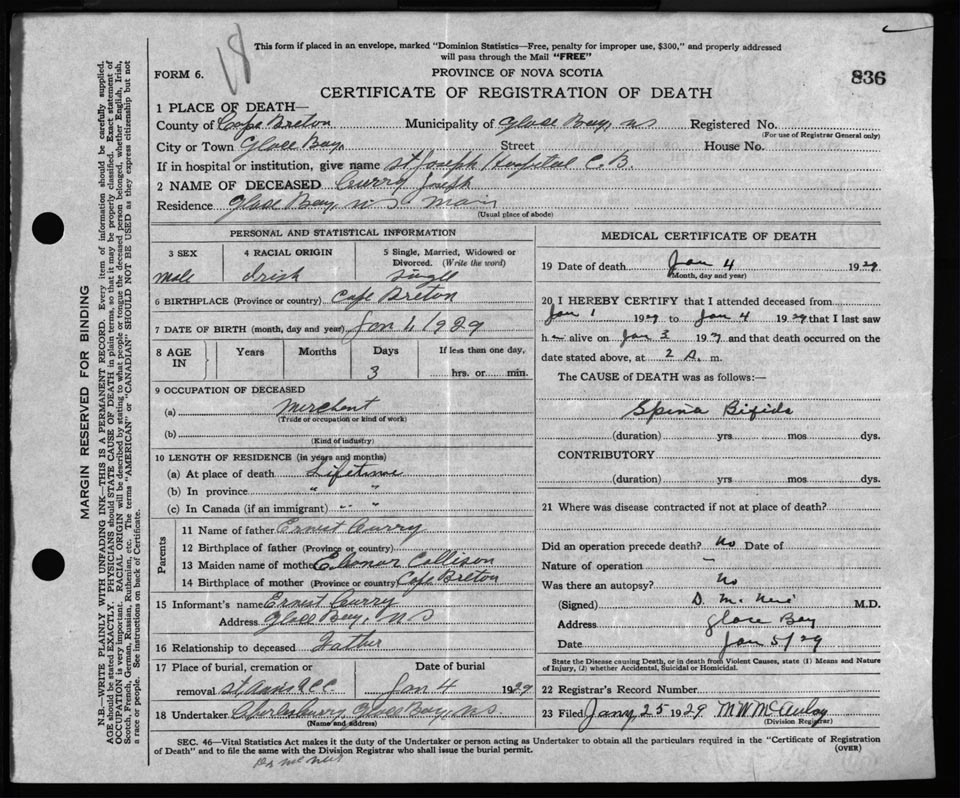 18
This form if placed in an envelope, marked "Dominion Statistics—Free, penalty for improper use, $300," and properly addressed
will pass through the Mail "FREE"
FORM 6.
PROVINCE OF NOVA SCOTIA
836
CERTIFICATE OF REGISTRATION OF DEATH
1 PLACE OF DEATH—
County of Cape Breton Municipality of Glace Bay, NS Registered No.
(For use of Registrar General only)
City or Town Glace Bay. Street House No.
If in hospital or institution, give name St Joseph Hospital C.B.
2 NAME OF DECEASED Curry Joseph
Residence Glace Bay, NS Main
(Usual place of abode)
PERSONAL AND STATISTICAL INFORMATION
3 SEX 4 RACIAL ORIGIN 5 Single, Married, Widowed or
Divorced. (Write the word)
Male Irish Single
6 BIRTHPLACE (Province or country) Cape Breton
7 DATE OF BIRTH (month, day and year) Jan 1/1929
8 AGE IN Years Months Days If less than one day,
3 hrs. or min.
9 OCCUPATION OF DECEASED
(a) Merchant
(Trade or occupation or kind of work)
(b)
(Kind of industry)
10 LENGTH OF RESIDENCE (in years and months)
(a) At place of death Lifetime
(b) In province " "
(c) In Canada (if an immigrant) " "
Parents
11 Name of father Ernest Curry
12 Birthplace of father (Province or country)
13 Maiden name of mother Elenor Collison
14 Birthplace of mother (Province or country) Cape Breton
15 Informant's name Ernest Curry
Address Glace Bay, NS
16 Relationship to deceased Father
17 Place of burial, cremation or Date of burial
removal St Anns R.C.C. Jan 4 1929
18 Undertaker Glace Bay, NS
(Name and address)
MEDICAL CERTIFICATE OF DEATH
19 Date of death Jan 4 1929
(Month, day and year)
20 I HEREBY CERTIFY that I attended deceased from
Jan 1 1929 to Jan 4 1929 that I last saw
h alive on Jan 3 1929 and that death occurred on the
date stated above, at 2 A. m.
The CAUSE of DEATH was as follows:—
Spina Bifida
(duration) yrs. mos. dys.
CONTRIBUTORY
(duration) yrs. mos. dys.
21 Where was disease contracted if not at place of death?
Did an operation precede death? No Date of
Nature of operation –
Was there an autopsy? No
(Signed) D. McNeil M.D.
Address Glace Bay
Date Jan 5/29
State the Disease causing Death, or in death from Violent Causes, state (1) Means and Nature
of Injury, (2) whether Accidental, Suicidal or Homicidal.
22 Registrar's Record Number
23 Filed Jany 25 1929 M W McAulay
(Division Registrar)
SEC. 46—Vital Statistics Act makes it the duty of the Undertaker or person acting as Undertaker to obtain all the particulars required in the "Certificate of Registration
of Death" and to file the same with the Division Registrar who shall issue the burial permit.
(OVER)
Dr McNeil
MARGIN RESERVED FOR BINDING
N.B.—WRITE PLAINLY WITH UNFADING INK—THIS IS A PERMANENT RECORD. Every item of information should be carefully supplied.
AGE should be stated EXACTLY. PHYSICIANS should STATE CAUSE OF DEATH in plain terms, so that it may be properly classified. Exact statement of
OCCUPATION is very important. RACIAL ORIGIN will be described by stating to what people or tongue the deceased person belonged, whether English, Irish,
Scotch, French, German, Russian, Ruthenian, etc. The terms "AMERICAN" or "CANADIAN" SHOULD NOT BE USED as they express citizenship but not
a race or people. See instructions on back of Certificate.